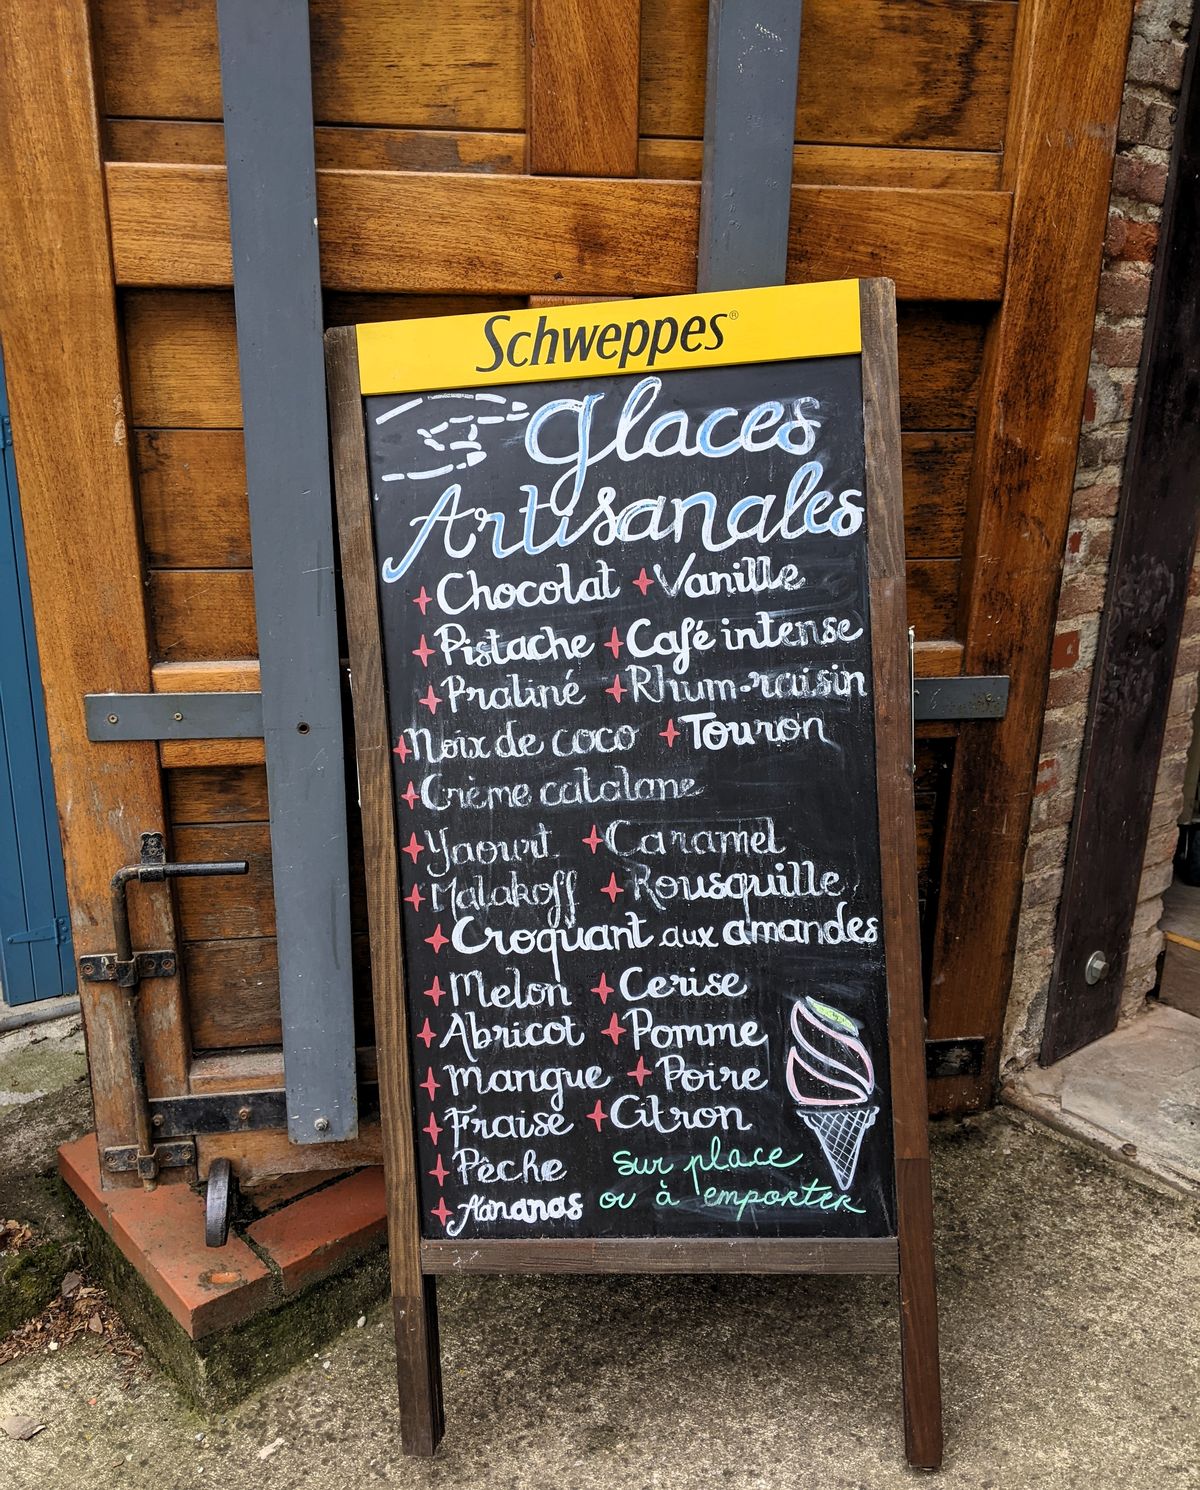 Schweppes®
Glaces
Artisanales
Chocolat Vanille
Pistache Café intense
Praliné Rhum-raisin
Noix de coco Touron
Crème catalane
Yaourt Caramel
Malakoff Rousquille
Croquant aux amandes
Melon Cerise
Abricot Pomme
Mangue Poire
Fraise Citron
Pêche sur place
Ananas ou à emporter